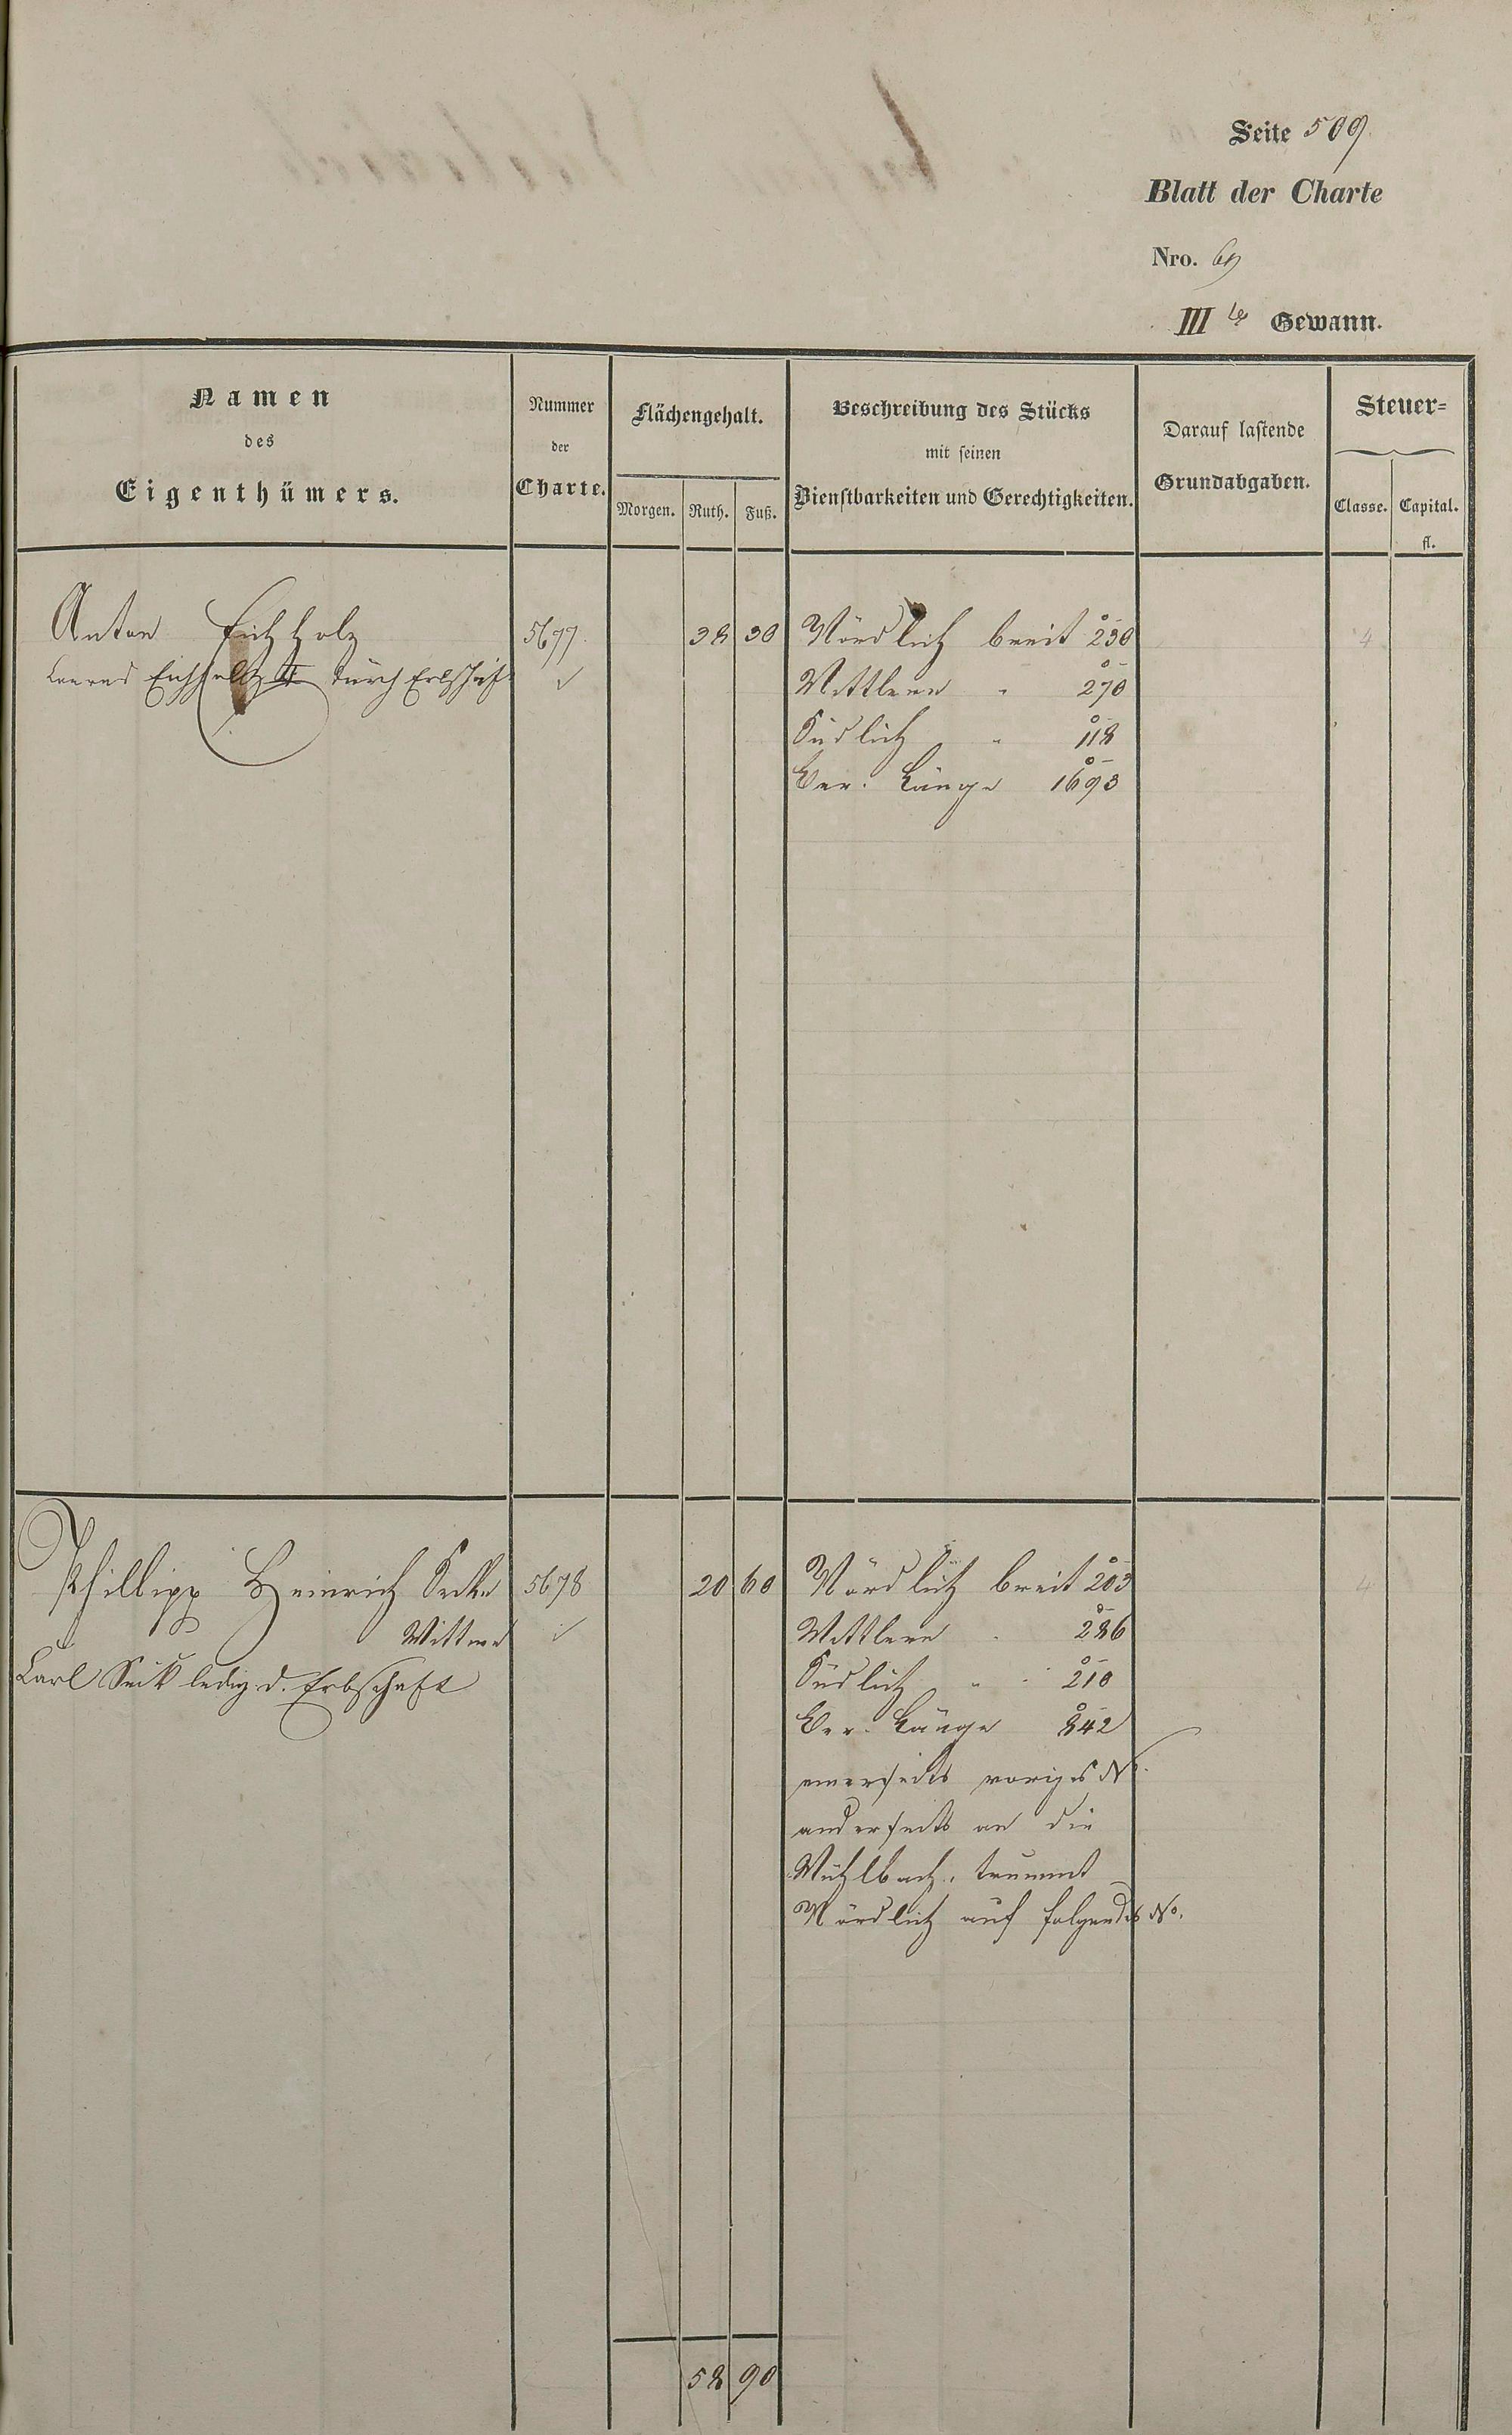 Seite 509
Blatt der Charte
Nro. 69
III te Gewann.
Namen
des
Eigenthümers.
Nummer
der
Charte.
Flächengehalt.
Morgen. Ruth. Fuß.
Beschreibung des Stücks
mit seinen
Dienstbarkeiten und Gerechtigkeiten.
Darauf lastende
Grundabgaben.
Steuer=
Classe. Capital.
fl.
Anton Eichholz 5677. 38 30 Nördlich breit 230 4
Conrad Eichholz II durch Erbschaft ✓ Mittlere " 270
Südlich " 118
Ver. Länge 1693
Phillipp Heinrich 5678 20 60 Nördlich breit 203 4
Wittwe ✓ Mittlere " 286
Carl Seik ledig d. Erbschaft Südlich " 210
Ver. Länge 842
einerseits voriges No.
anderseits an die
Mühlbach,
Nördlich auf folgendes No.
58 90